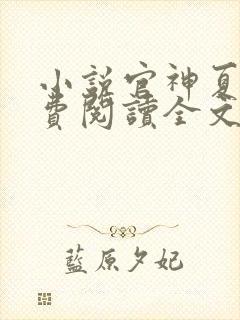 小說官神夏
費閱讀全文
藍原夕妃